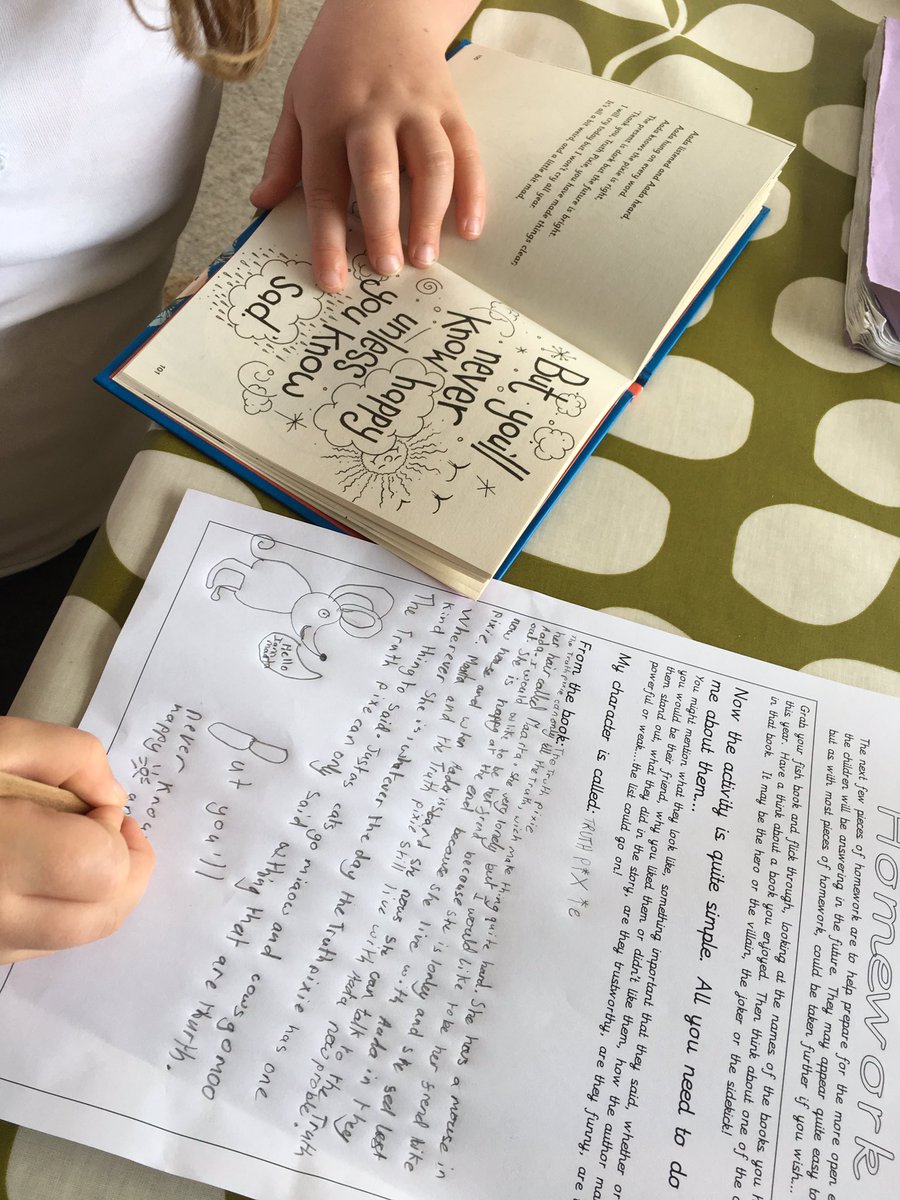 Aada listened and Aada heard,
Aada hung on every word.
The present is dark but the future is bright.
Aada knows the pixie is right.
'Thank you, Truth Pixie, you have made things clear,
I will cry today but I won't cry all year.
It's all a bit weird and a little bit mad,
100
But you'll
never
know happy
unless
you know
Sad
101
Homework
The next few pieces of homework are to help prepare for the more open
the children will be answering in the future. They may appear quite easy to
but as with most pieces of homework, could be taken further if you wish...
Grab your fish book and flick through, looking at the names of the books you
this year. Have a think about a book you enjoyed. Then think about one of the
in that book. It may be the hero or the villain, the joker or the sidekick!
Now the activity is quite simple. All you need to do
me about them...
You might mention what they look like, something important that they said, whether or
you would be their friend, why you liked them or didn't like them, how the author ma
them stand out, what they did in the story, are they trustworthy, are they funny, are
powerful or weak...the list could go on!
My character is called: TRUTH PIXIE
From the book: The Truth pixie.
The Truth pixe can only tell the truth wich make thing quite hard. She has a mouse in
her hair called Maarta she very lonely but I would like to be her friend like
Aada. I would like to be her frend because she is lonley and she sed lest
out. She is happy at the end because she live with Aada in they
now house and when Aada is sad she nows she can talk to the Truth
pixie. Marta and the Truth pixie still live with Aada now proble.
Wherever she is whatever the day the truthpixie has one
kind thing to said. Just as cats go miaow and cows go moo
The Truth pixe can only said withing that are thurth.
Hello
I am
But you'll
never know
happy